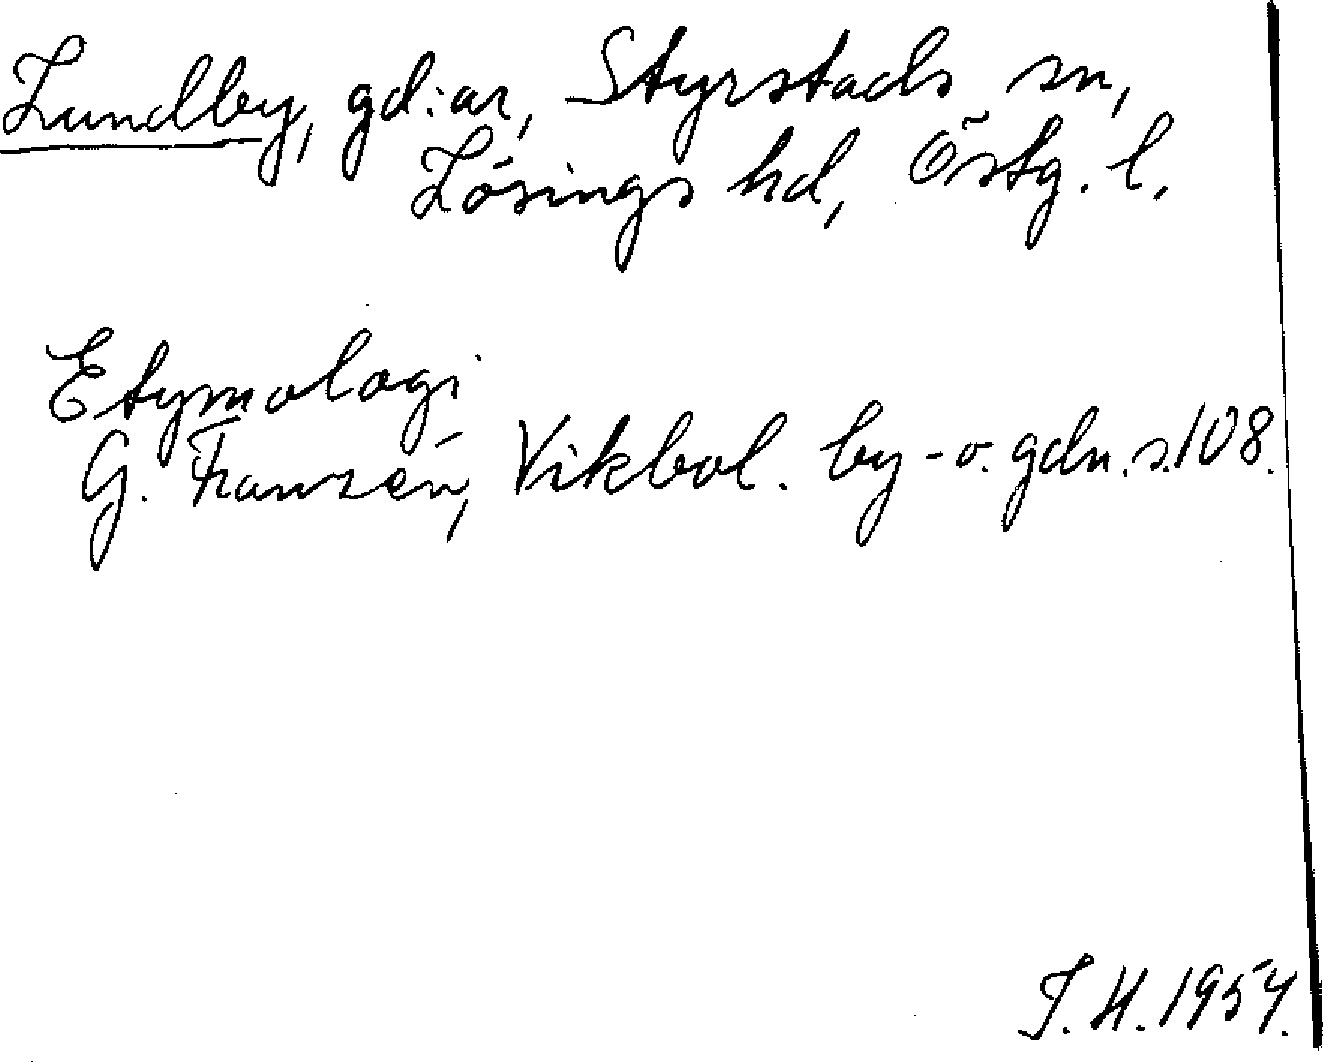 Lundby, gd:ar, Styrstads sn,
Lösings hd, Östg. l.
Etymologi
G. Franzén, Vikbol. by- o. gdn. s. 108.
T. H. 1954.